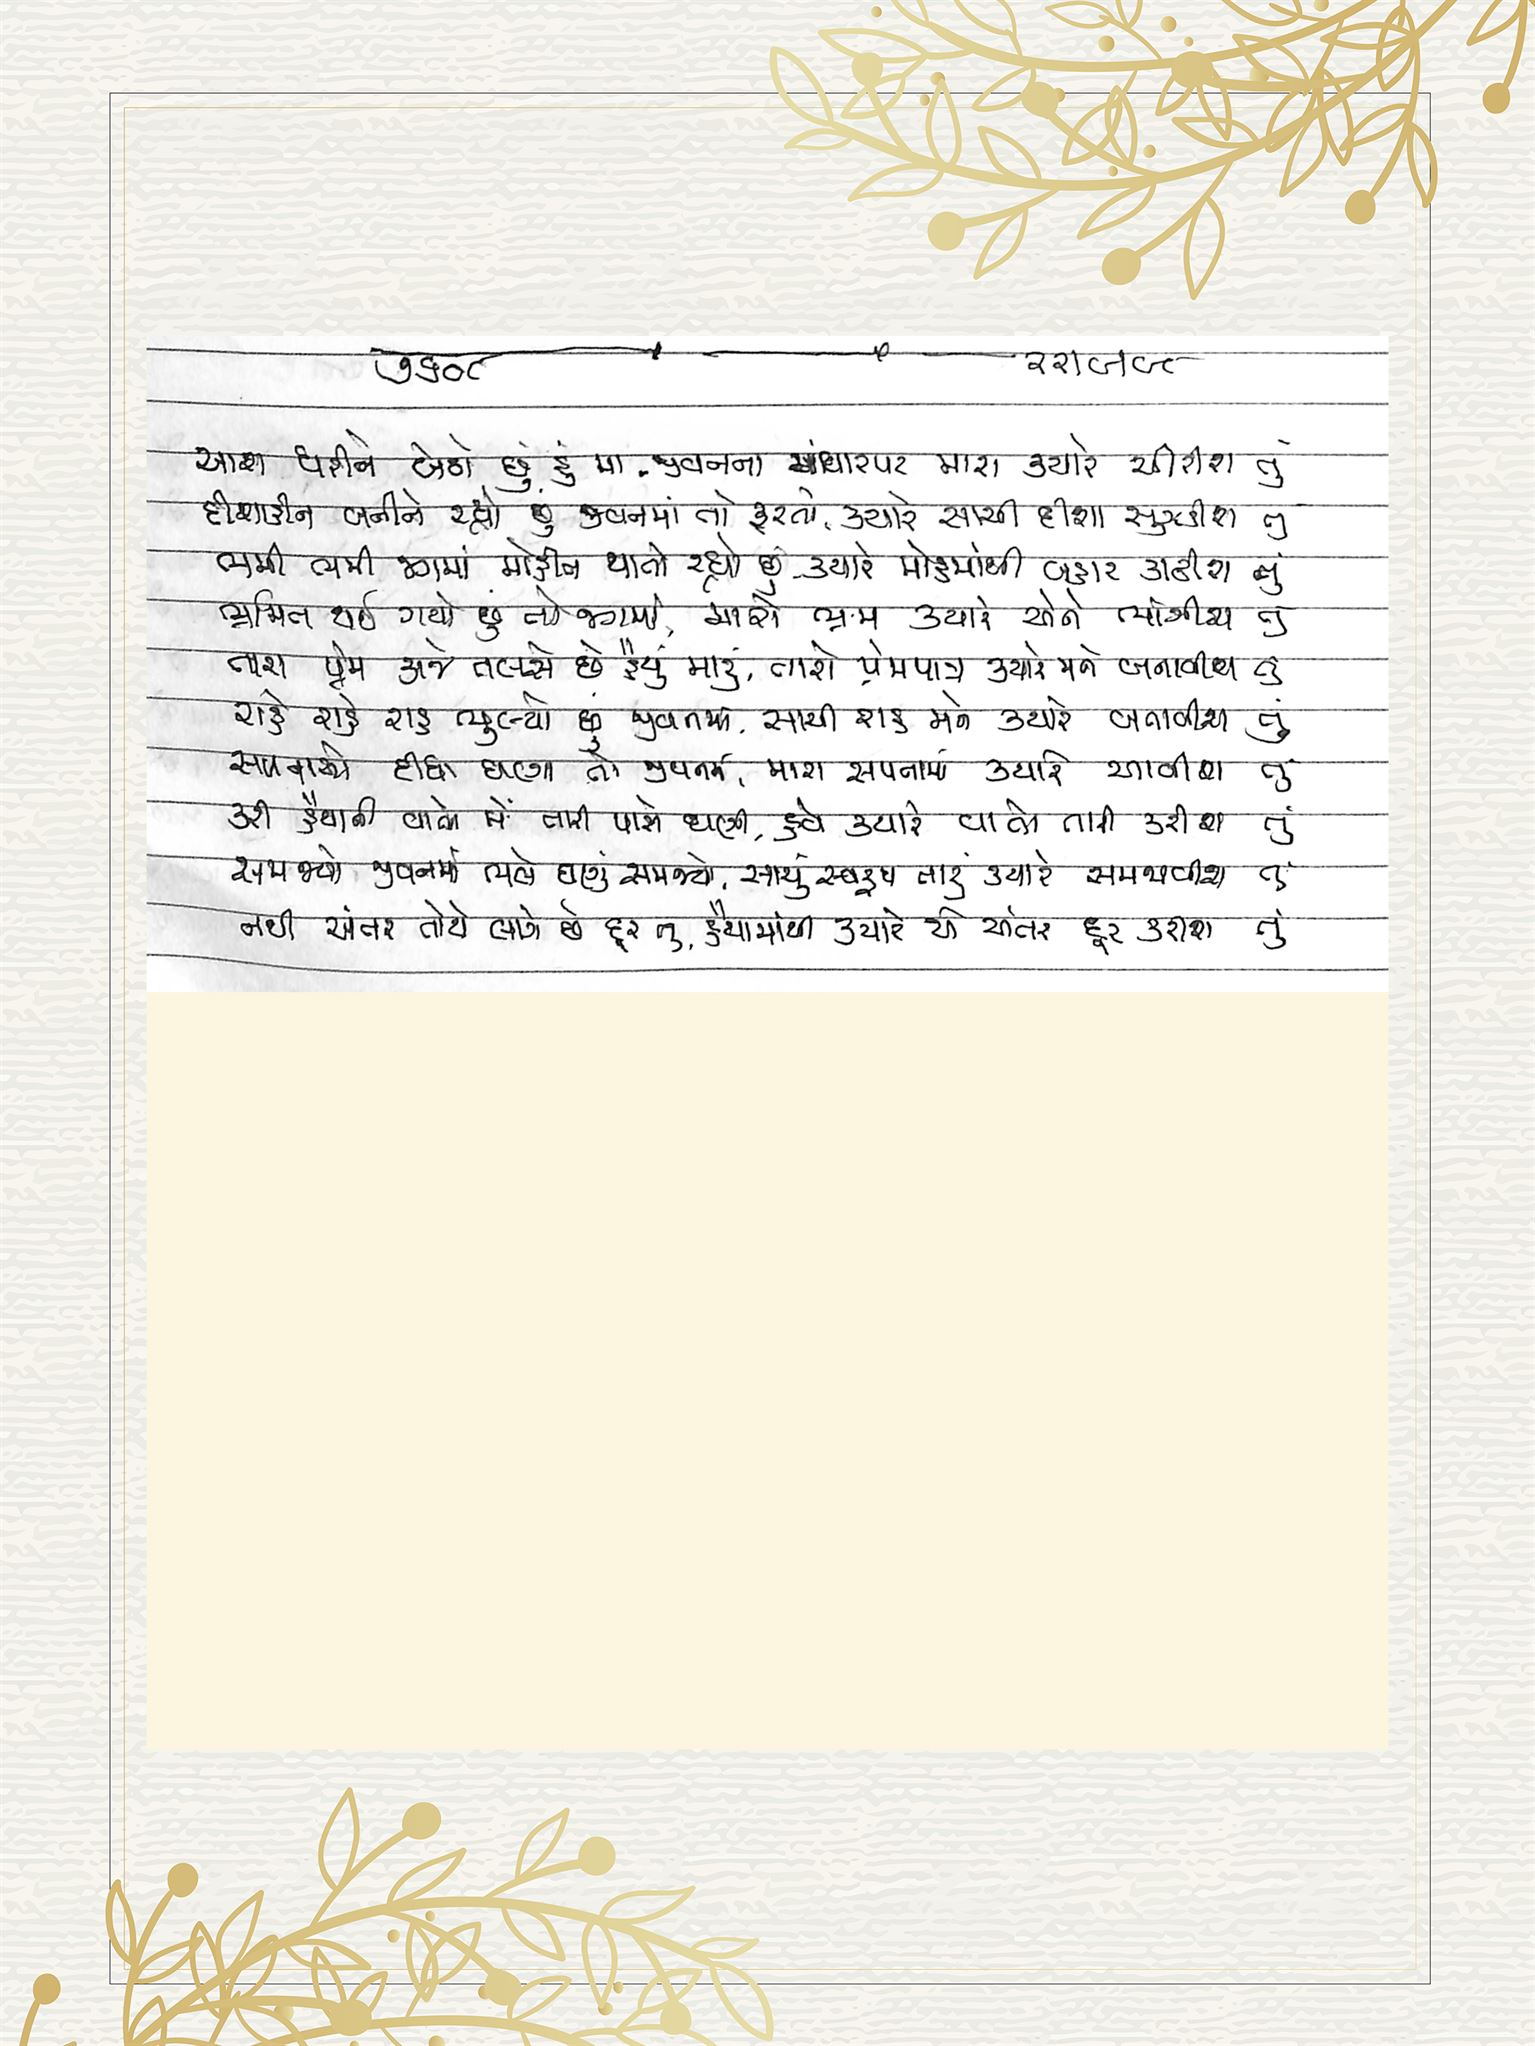 ૭૬૦૮ ૨૨।૭।૯૮
આશ ધરીને બેઠો છું હું મા, જીવનના આંધારપટ મારા ક્યારે ચીરીશ તું
દીશાહીન બનીને રહ્યો છું જીવનમાં તો ફરતો, ક્યારે સાચી દીશા સુઝાડીશ તું
ભમી ભમી જગમાં મોહીત થાતો રહ્યો છું ક્યારે મોહમાંથી બહાર કાઢીશ તું
ભ્રમિત થઈ ગયો છું તો જગમાં, મારો ભ્રમ ક્યારે એને ભાંગીશ તું
તારા પ્રેમ કાજે તલસે છે હૈયું મારું, તારો પ્રેમપાત્ર ક્યારે મને બનાવીશ તું
રાહે રાહે રાહ ભુલ્યો છું જીવનમાં, સાચી રાહ મને ક્યારે બતાવીશ તું
સપનાઓ દીઠા ઘણા તો જીવનમાં, મારા સપનામાં ક્યારે આવીશ તું
કરી હૈયાની વાતો મેં તારી પાસે ઘણી, હવે ક્યારે વાતો તારી કરીશ તું
સમજ્યો જીવનમાં ભલે ઘણું સમજ્યો, સાચું સ્વરૂપ તારું ક્યારે સમજાવીશ તું
નથી અંતર તોયે લાગે છે દૂર તુ, હૈયામાંથી ક્યારે એ અંતર દૂર કરીશ તું